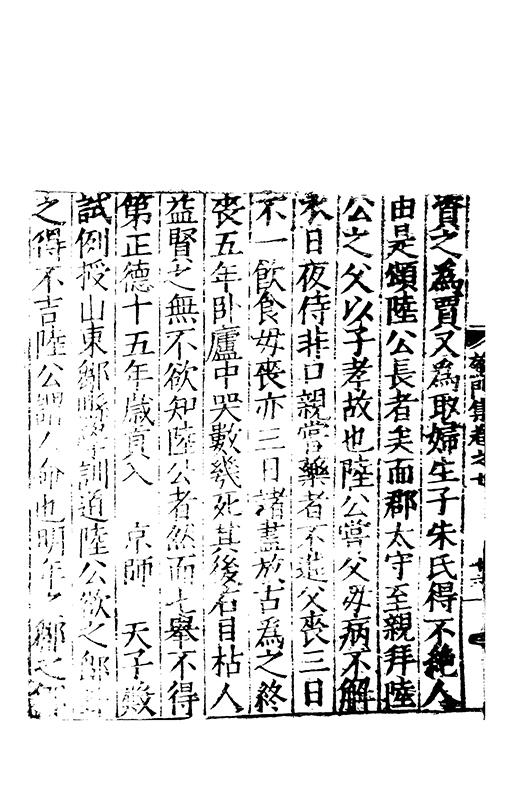 資之為賈又為取婦生子朱氏得不絶人
由是頌陸公長者矣而郡太守至親拜陸
公之父以子孝故也陸公嘗父母病不解
衣日夜侍非口親嘗藥者不進父喪三日
不一飲食母喪亦三日諸盡放古為之終
喪五年卧廬中哭數幾死其後右目枯人
益賢之無不欲知陸公者然而七舉不得
第正德十五年歲貢入 京師 天子發
試例授山東鄒縣學訓道陸公欲之鄒
之得不吉陸公謂人命也明年之鄒之
集卷之七